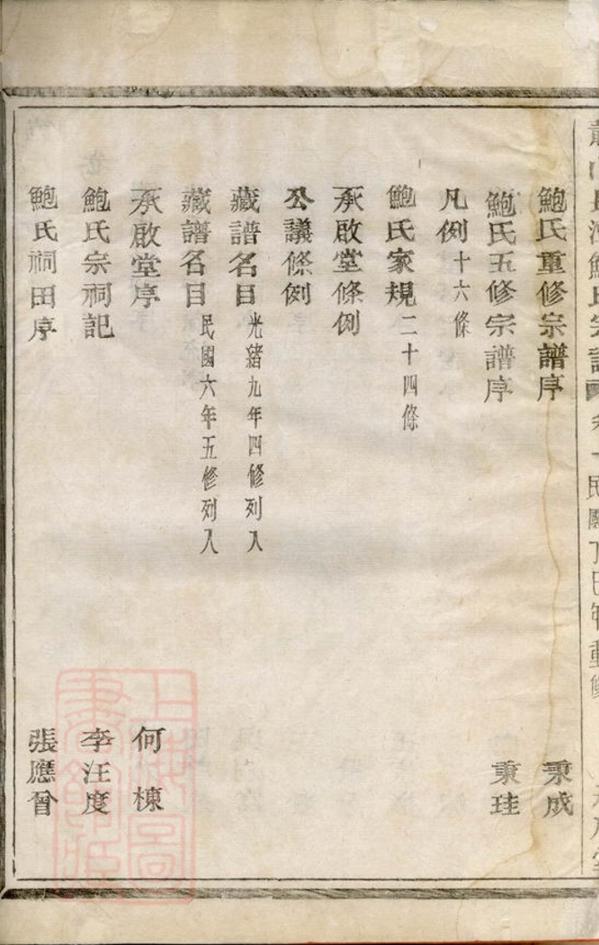 鮑氏重修宗譜序 秉成
鮑氏五修宗譜序 秉珪
凡例十六條
鮑氏家規二十四條
承啟堂條例
公議條例
藏譜名目光緒九年四修列入
藏譜名目民國六年五修列入
承啟堂序 何棟
鮑氏宗祠記 李汪度
鮑氏祠田序 張應曾